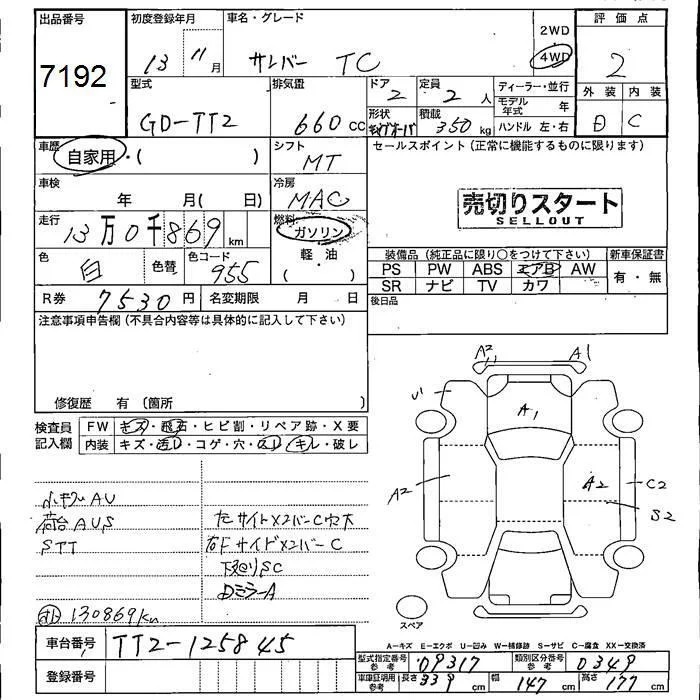 出品番号
7192
初度登録年月
13 11月
車名・グレード
サンバー TC
2WD
4WD
評価点
2
外装 内装
D C
型式
GD-TT2
排気量
660cc
ドア
2
定員
2人
形状
積載
350kg
ディーラー・並行
モデル年式 年
ハンドル 左・右
車歴
自家用・( )
シフト
MT
セールスポイント(正常に機能するものに限ります)
売切りスタート
SELLOUT
車検
年 月( 日)
冷房
MAC
走行
13万0千869km
燃料
ガソリン
軽・油
( )
色
白
色替
色コード
955
装備品(純正品に限り○をつけて下さい)
新車保証書
PS PW ABS エアB AW
SR ナビ TV カワ
有・無
R券 7530円
名変期限 月 日
後日品
注意事項申告欄(不具合内容等は具体的に記入して下さい)
修復歴 有(箇所 )
検査員記入欄
FW キズ・飛石・ヒビ割・リペア跡・X要
内装 キズ・汚レ・コゲ・穴・スレ・キレ・破レ
小キズAU
荷台AUS
STT
130869km
左サイドメンバーC穴大
右Fサイドメンバー C
下廻りSC
DミラーA
A2
A1
A1
A2
A2
C2
S2
スペア
A−キズ E−エクボ U−凹み W−補修跡 S−サビ C−腐食 XX−交換済
車台番号
TT2-125845
登録番号
型式指定番号
参考
09317
類別区分番号
参考
0349
車庫証明用
参考
長さ 339cm
幅 147cm
高さ 177cm